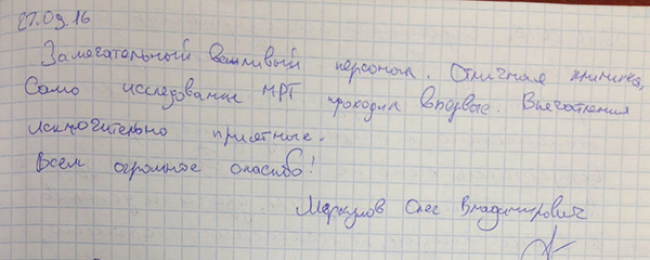 27.09.16
Замечательный вежливый персонал. Отличная клиника,
Само исследование МРТ проходил впервые. Впечатления
исключительно приятные.
Всем огромное спасибо!
Меркулов Олег Владимирович